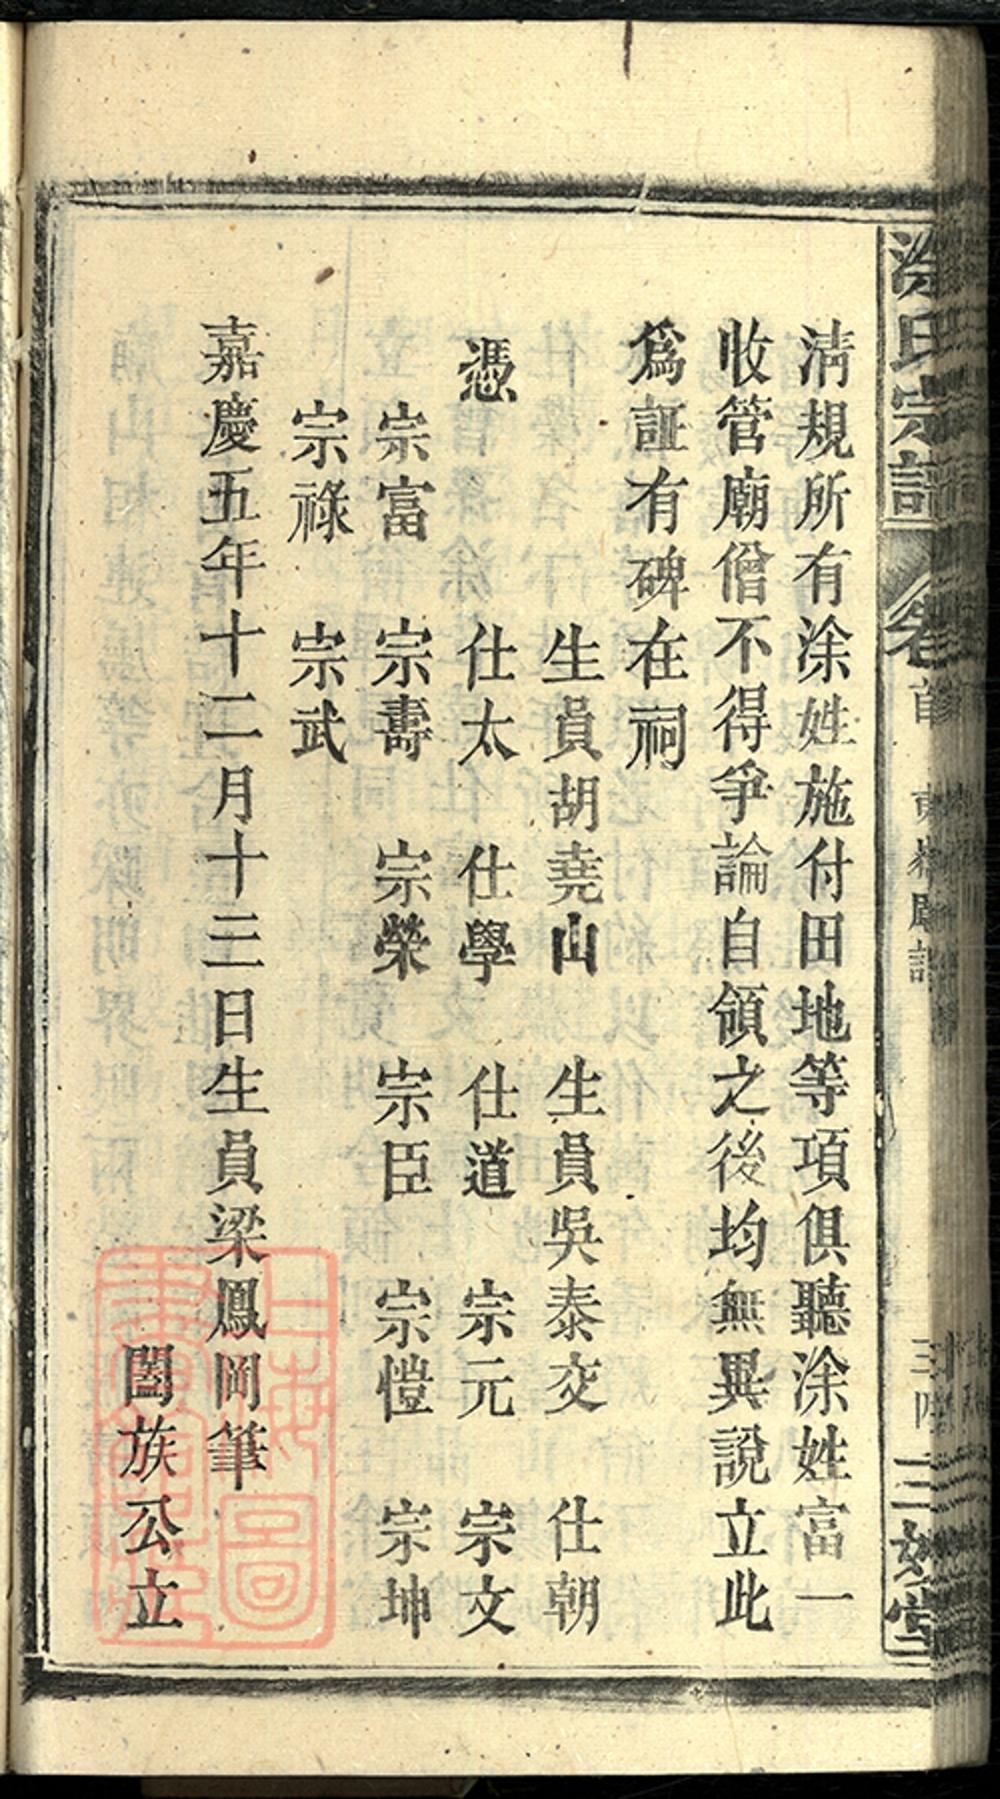 涂氏宗譜
卷首
三
清規所有涂姓施付田地等項俱聽涂姓富一
收管廟僧不得爭論自領之後均無異說立此
爲証有碑在祠
生員胡堯山　生員吳泰交　仕朝
憑　仕太　仕學　仕道　宗元　宗文
宗富　宗壽　宗榮　宗臣　宗愷　宗坤
宗祿　宗武
嘉慶五年十二月十三日生員梁鳳岡筆
闔族公立
上海圖書館藏